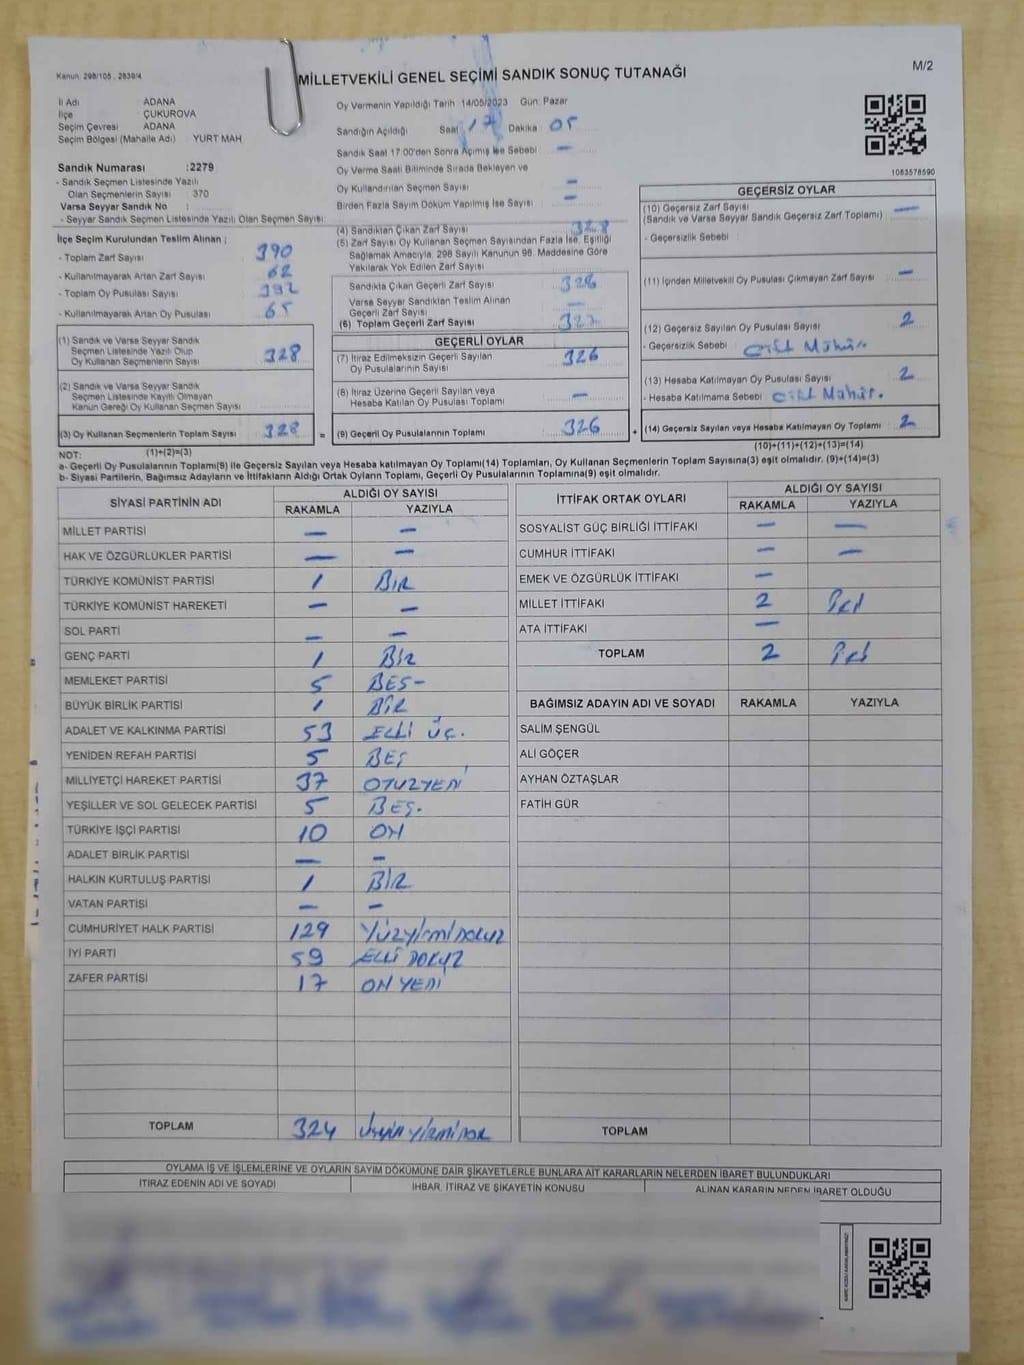 Kanun, 298/105 , 2839/4
MİLLETVEKİLİ GENEL SEÇİMİ SANDIK SONUÇ TUTANAĞI
M/2
İl Adı ADANA
İlçe ÇUKUROVA
Seçim Çevresi ADANA
Seçim Bölgesi (Mahalle Adı) YURT MAH
Oy Vermenin Yapıldığı Tarih 14/05/2023 Gün: Pazar
Sandığın Açıldığı Saat 17 Dakika 05
Sandık Saat 17:00'den Sonra Açılmış İse Sebebi —
Oy Verme Saati Bitiminde Sırada Bekleyen ve
Oy Kullandırılan Seçmen Sayısı —
Birden Fazla Sayım Döküm Yapılmış İse Sayısı —
1083578590
Sandık Numarası :2279
- Sandık Seçmen Listesinde Yazılı
Olan Seçmenlerin Sayısı : 370
Varsa Seyyar Sandık No :
- Seyyar Sandık Seçmen Listesinde Yazılı Olan Seçmen Sayısı:
İlçe Seçim Kurulundan Teslim Alınan ;
- Toplam Zarf Sayısı 390
- Kullanılmayarak Artan Zarf Sayısı 62
- Toplam Oy Pusulası Sayısı 392
- Kullanılmayarak Artan Oy Pusulası 65
(1) Sandık ve Varsa Seyyar Sandık
Seçmen Listesinde Yazılı Olup
Oy Kullanan Seçmenlerin Sayısı 328
(2) Sandık ve Varsa Seyyar Sandık
Seçmen Listesinde Kayıtlı Olmayan
Kanun Gereği Oy Kullanan Seçmen Sayısı
(3) Oy Kullanan Seçmenlerin Toplam Sayısı 328 =
(1)+(2)=(3)
(4) Sandıktan Çıkan Zarf Sayısı 328
(5) Zarf Sayısı Oy Kullanan Seçmen Sayısından Fazla İse, Eşitliği
Sağlamak Amacıyla, 298 Sayılı Kanunun 98. Maddesine Göre
Yakılarak Yok Edilen Zarf Sayısı
Sandıkta Çıkan Geçerli Zarf Sayısı 328
Varsa Seyyar Sandıktan Teslim Alınan
Geçerli Zarf Sayısı —
(6) Toplam Geçerli Zarf Sayısı
GEÇERLİ OYLAR
(7) İtiraz Edilmeksizin Geçerli Sayılan
Oy Pusulalarının Sayısı 326
(8) İtiraz Üzerine Geçerli Sayılan veya
Hesaba Katılan Oy Pusulası Toplamı —
(9) Geçerli Oy Pusulalarının Toplamı 326 +
GEÇERSİZ OYLAR
(10) Geçersiz Zarf Sayısı —
(Sandık ve Varsa Seyyar Sandık Geçersiz Zarf Toplamı)
- Geçersizlik Sebebi :
(11) İçinden Milletvekili Oy Pusulası Çıkmayan Zarf Sayısı —
(12) Geçersiz Sayılan Oy Pusulası Sayısı 2
- Geçersizlik Sebebi : Çift Mühür
(13) Hesaba Katılmayan Oy Pusulası Sayısı 2
- Hesaba Katılmama Sebebi : Çift Mühür.
(14) Geçersiz Sayılan veya Hesaba Katılmayan Oy Toplamı 2
(10)+(11)+(12)+(13)=(14)
NOT:
a- Geçerli Oy Pusulalarının Toplamı(9) ile Geçersiz Sayılan veya Hesaba katılmayan Oy Toplamı(14) Toplamları, Oy Kullanan Seçmenlerin Toplam Sayısına(3) eşit olmalıdır. (9)+(14)=(3)
b- Siyasi Partilerin, Bağımsız Adayların ve İttifakların Aldığı Ortak Oyların Toplamı, Geçerli Oy Pusulalarının Toplamına(9) eşit olmalıdır.
SİYASİ PARTİNİN ADI ALDIĞI OY SAYISI
RAKAMLA YAZIYLA
MİLLET PARTİSİ — —
HAK VE ÖZGÜRLÜKLER PARTİSİ — —
TÜRKİYE KOMÜNİST PARTİSİ 1 BİR
TÜRKİYE KOMÜNİST HAREKETİ — —
SOL PARTİ — —
GENÇ PARTİ 1 BİR
MEMLEKET PARTİSİ 5 BES-
BÜYÜK BİRLİK PARTİSİ 1 BİR
ADALET VE KALKINMA PARTİSİ 53 ELLİ ÜÇ.
YENİDEN REFAH PARTİSİ 5 BEŞ
MİLLİYETÇİ HAREKET PARTİSİ 37 OTUZYEDİ
YEŞİLLER VE SOL GELECEK PARTİSİ 5 BEŞ.
TÜRKİYE İŞÇİ PARTİSİ 10 ON
ADALET BİRLİK PARTİSİ — —
HALKIN KURTULUŞ PARTİSİ 1 BİR
VATAN PARTİSİ — —
CUMHURİYET HALK PARTİSİ 129 YÜZYİRMİDOKUZ
İYİ PARTİ 59 ELLİ DOKUZ
ZAFER PARTİSİ 17 ON YEDİ
TOPLAM 324
İTTİFAK ORTAK OYLARI ALDIĞI OY SAYISI
RAKAMLA YAZIYLA
SOSYALİST GÜÇ BİRLİĞİ İTTİFAKI — —
CUMHUR İTTİFAKI — —
EMEK VE ÖZGÜRLÜK İTTİFAKI —
MİLLET İTTİFAKI 2 İki
ATA İTTİFAKI —
TOPLAM 2 İki
BAĞIMSIZ ADAYIN ADI VE SOYADI RAKAMLA YAZIYLA
SALİM ŞENGÜL
ALİ GÖÇER
AYHAN ÖZTAŞLAR
FATİH GÜR
TOPLAM
OYLAMA İŞ VE İŞLEMLERİNE VE OYLARIN SAYIM DÖKÜMÜNE DAİR ŞİKAYETLERLE BUNLARA AİT KARARLARIN NELERDEN İBARET BULUNDUKLARI
İTİRAZ EDENİN ADI VE SOYADI İHBAR, İTİRAZ VE ŞİKAYETİN KONUSU ALINAN KARARIN NEDEN İBARET OLDUĞU